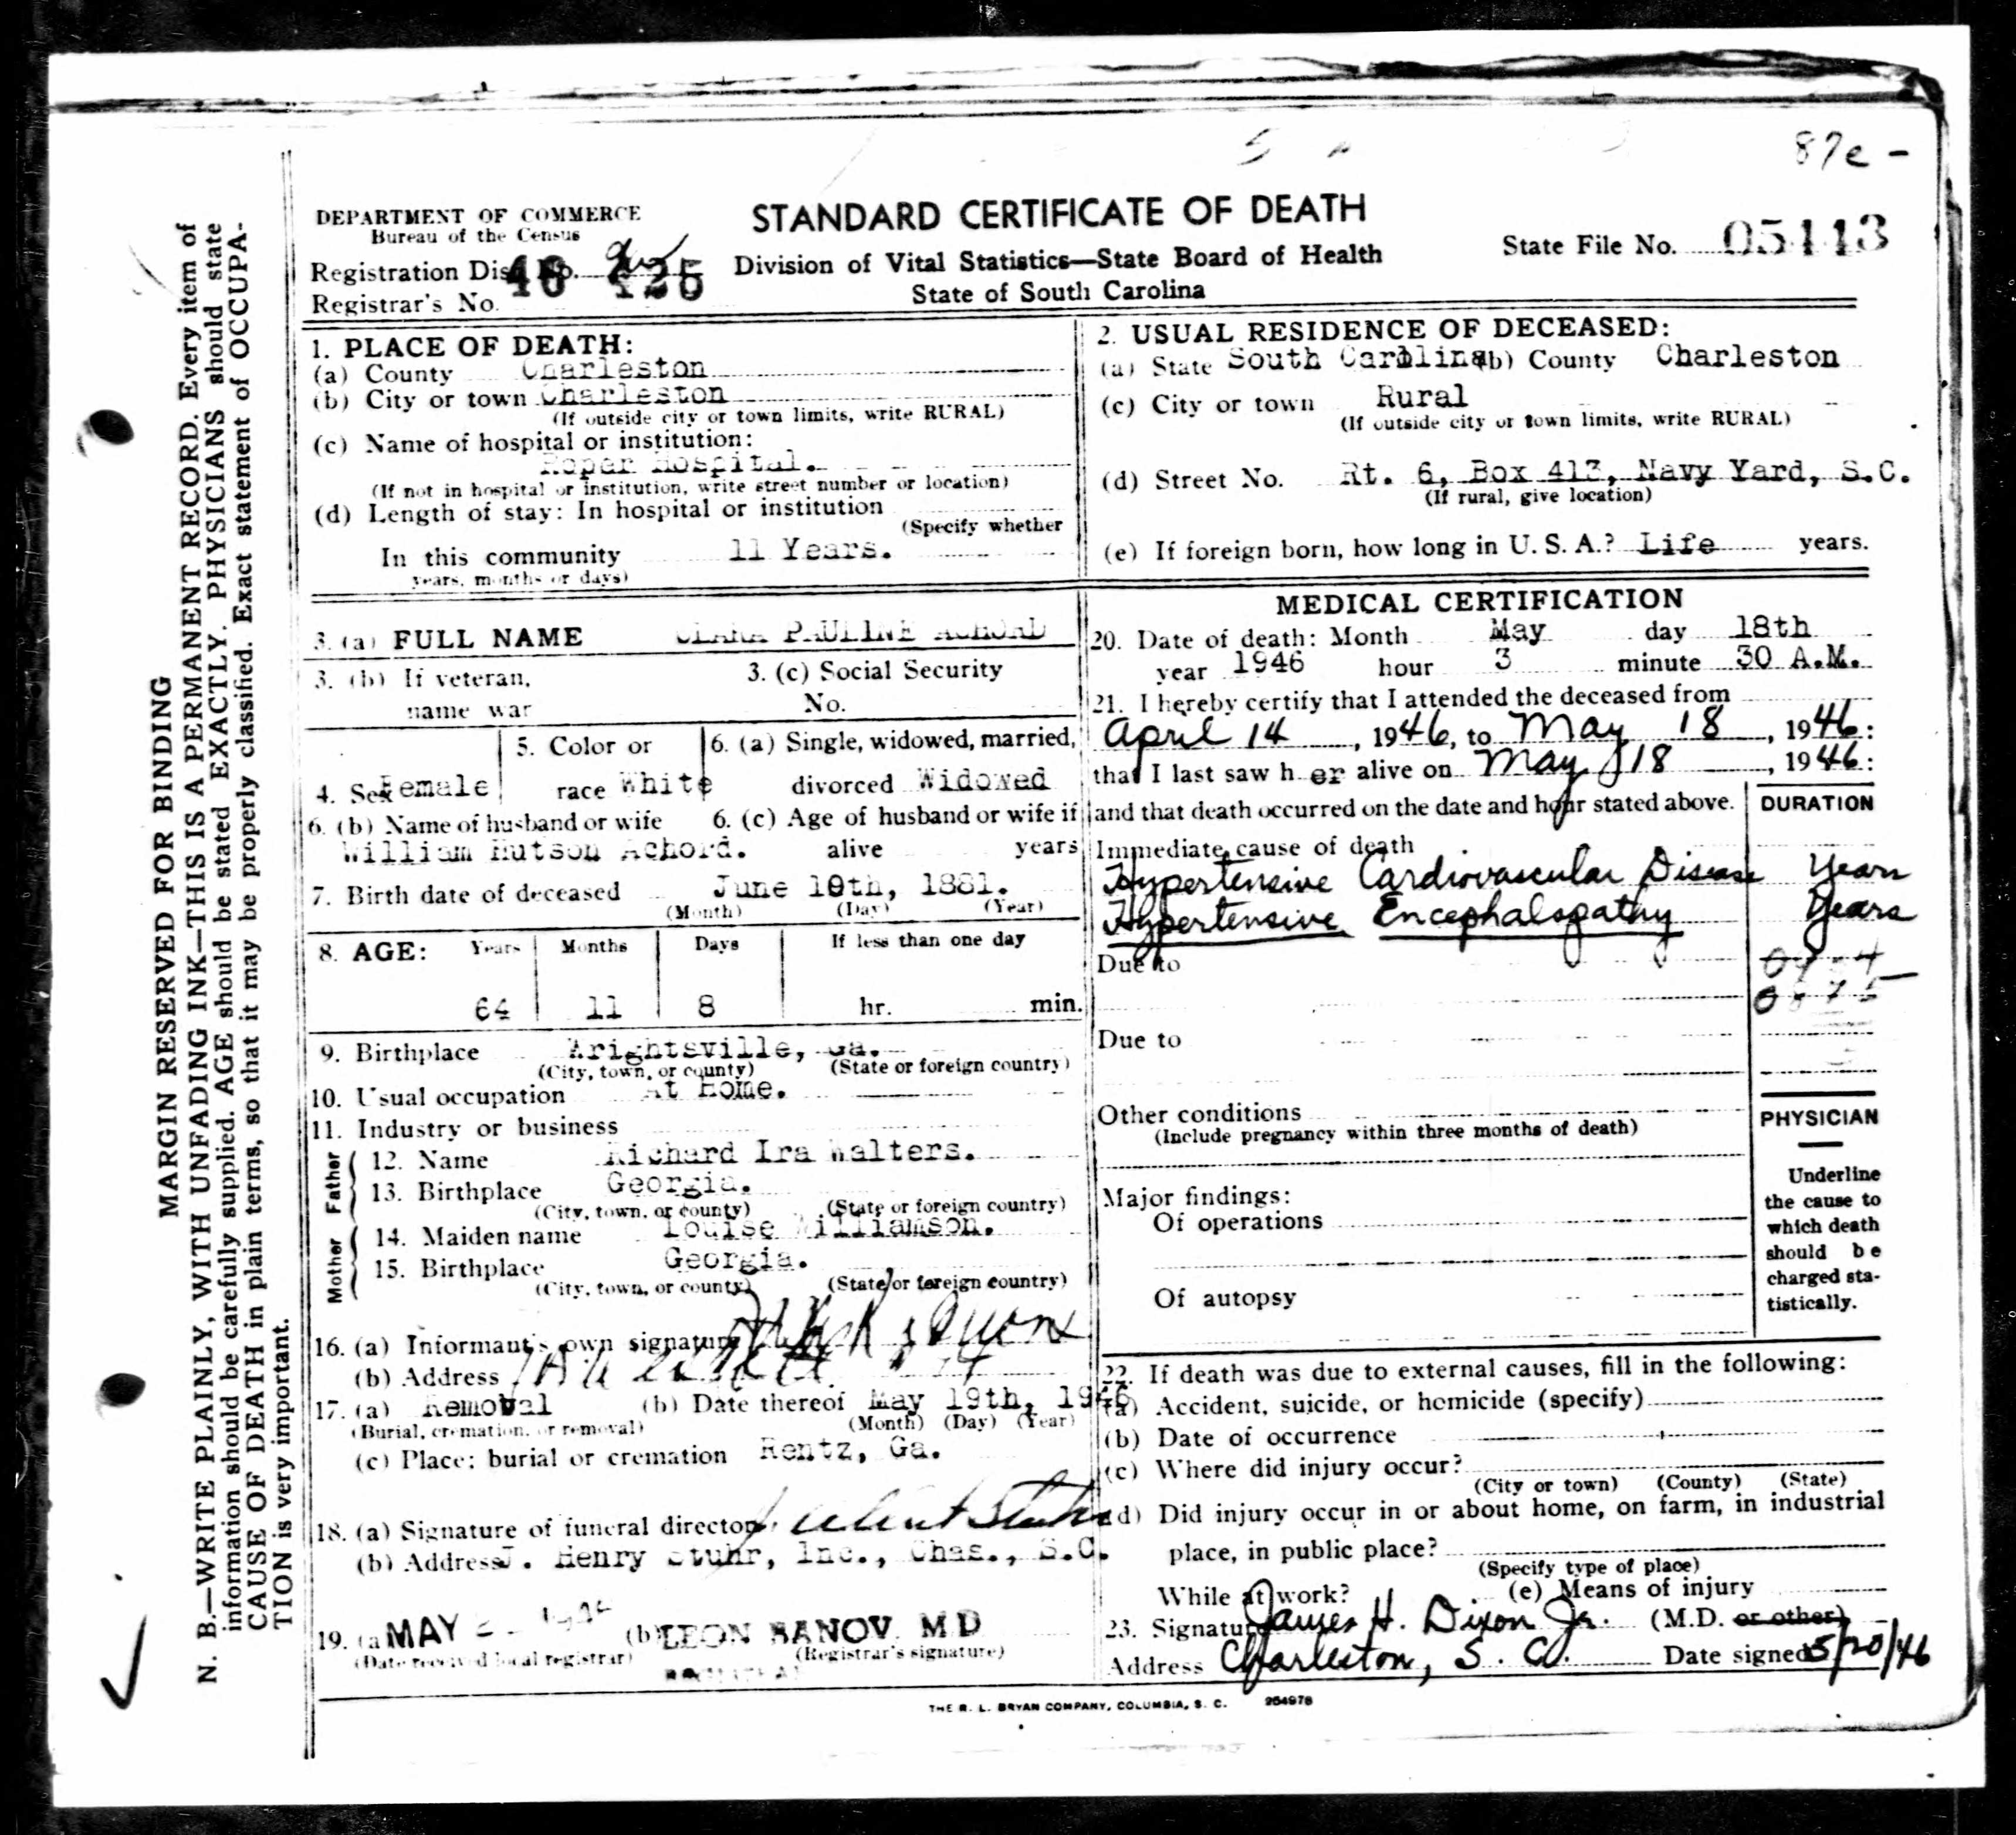 87e -
DEPARTMENT OF COMMERCE
Bureau of the Census
STANDARD CERTIFICATE OF DEATH
Division of Vital Statistics—State Board of Health
State of South Carolina
State File No. 05113
Registration Dist. No.
Registrar's No.
1. PLACE OF DEATH:
(a) County Charleston
(b) City or town Charleston
(If outside city or town limits, write RURAL)
(c) Name of hospital or institution:
Roper Hospital.
(If not in hospital or institution, write street number or location)
(d) Length of stay: In hospital or institution
(Specify whether
In this community 11 Years.
years, months or days)
2. USUAL RESIDENCE OF DECEASED:
(a) State South Carolina (b) County Charleston
(c) City or town Rural
(If outside city or town limits, write RURAL)
(d) Street No. Rt. 6, Box 413, Navy Yard, S.C.
(If rural, give location)
(e) If foreign born, how long in U. S. A.? Life years.
3. (a) FULL NAME CLARA PAULINE ACHORD
3. (b) If veteran, name war
3. (c) Social Security No.
4. Sex Female
5. Color or race White
6. (a) Single, widowed, married, divorced Widowed
6. (b) Name of husband or wife
William Hutson Achord.
6. (c) Age of husband or wife if alive years
7. Birth date of deceased June 10th, 1881.
(Month) (Day) (Year)
8. AGE: Years Months Days If less than one day
64 11 8 hr. min.
9. Birthplace Wrightsville, Ga.
(City, town, or county) (State or foreign country)
10. Usual occupation At Home.
11. Industry or business
Father
12. Name Richard Ira Walters.
13. Birthplace Georgia.
(City, town, or county) (State or foreign country)
Mother
14. Maiden name Louise Williamson.
15. Birthplace Georgia.
(City, town, or county) (State or foreign country)
16. (a) Informant's own signature
(b) Address
17. (a) Removal (b) Date thereof May 19th, 1946
(Burial, cremation, or removal) (Month) (Day) (Year)
(c) Place; burial or cremation Rentz, Ga.
18. (a) Signature of funeral director
(b) Address J. Henry Stuhr, Inc., Chas., S.C.
19. (a) MAY (b) LEON BANOV M D
(Date received local registrar) (Registrar's signature)
MEDICAL CERTIFICATION
20. Date of death: Month May day 18th
year 1946 hour 3 minute 30 A.M.
21. I hereby certify that I attended the deceased from
April 14, 1946, to May 18, 1946:
that I last saw her alive on May 18, 1946:
and that death occurred on the date and hour stated above.
DURATION
Immediate cause of death
Hypertensive Cardiovascular Disease Years
Hypertensive Encephalopathy Years
Due to
Due to
Other conditions
(Include pregnancy within three months of death)
Major findings:
Of operations
Of autopsy
PHYSICIAN
Underline
the cause to
which death
should be
charged sta-
tistically.
22. If death was due to external causes, fill in the following:
(a) Accident, suicide, or homicide (specify)
(b) Date of occurrence
(c) Where did injury occur?
(City or town) (County) (State)
(d) Did injury occur in or about home, on farm, in industrial
place, in public place?
(Specify type of place)
While at work? (e) Means of injury
23. Signature James H. Dixon Jr. (M.D. or other)
Address Charleston, S. C. Date signed 5/20/46
THE R. L. BRYAN COMPANY, COLUMBIA, S. C. 264978
MARGIN RESERVED FOR BINDING
N. B.—WRITE PLAINLY, WITH UNFADING INK—THIS IS A PERMANENT RECORD. Every item of
information should be carefully supplied. AGE should be stated EXACTLY. PHYSICIANS should state
CAUSE OF DEATH in plain terms, so that it may be properly classified. Exact statement of OCCUPA-
TION is very important.